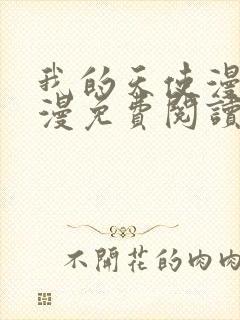 我的天使漫
漫免費閱讀
不開花的肉肉